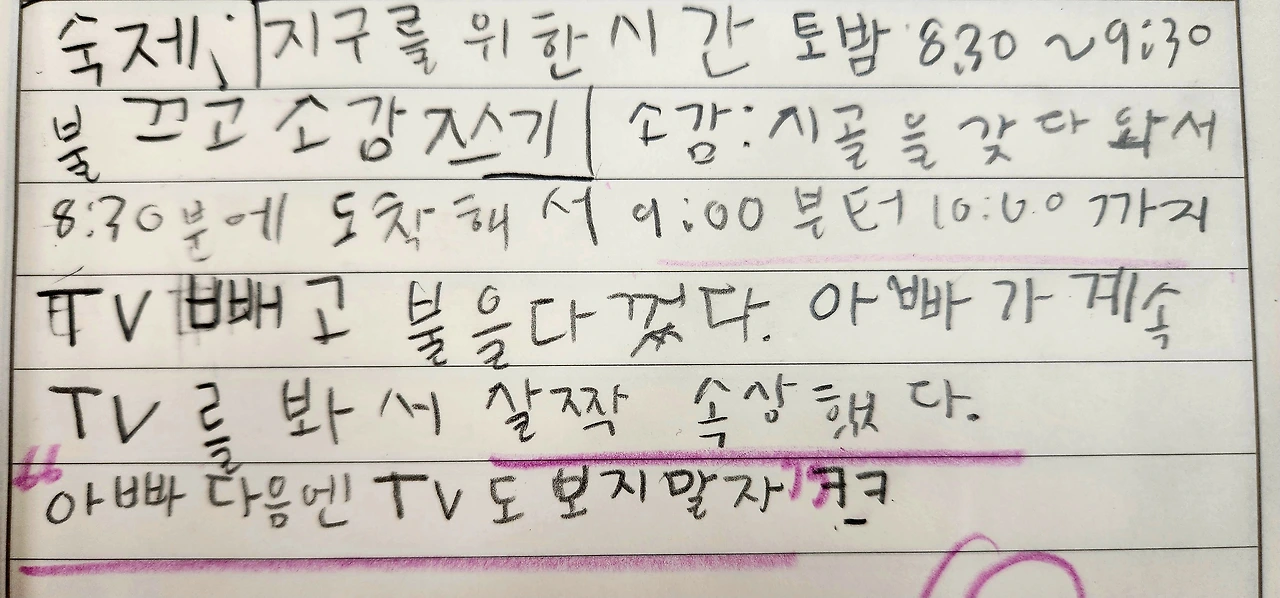 숙제; 지구를 위한 시간 토밤 8:30 ~9:30
불 끄고 소감 쯔기 소감: 시골을 갖다 와서
8:30분에 도착해서 9:00부터 10:00까지
TV 빼고 불을 다 껐다. 아빠가 계속
TV를 봐서 살짝 속상했다.
"아빠 다음엔 TV도 보지말자" ㅋㅋ